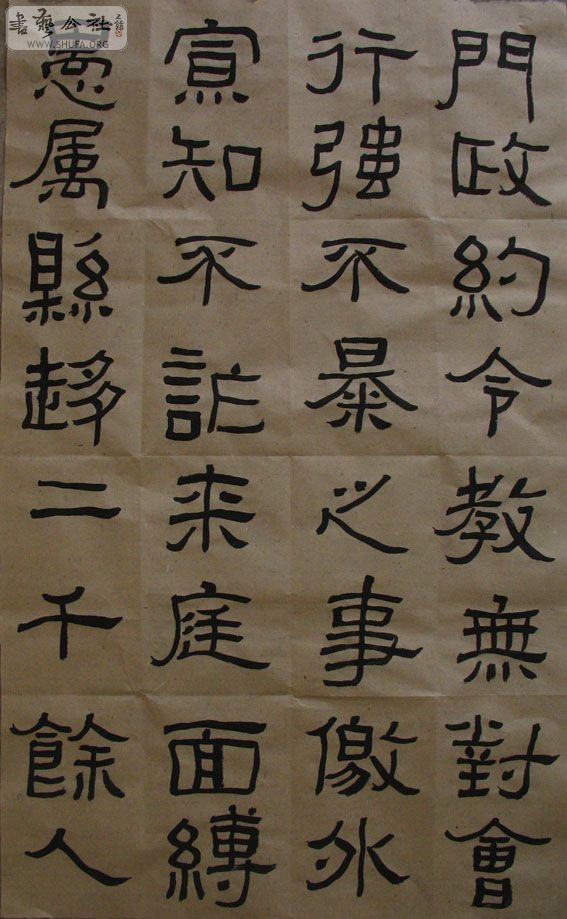 門政約令教無對會
行強不暴之事儌外
寡知不詐来庭面縛
愚属縣趍二千餘人
書藝公社
WWW.SHUFA.ORG